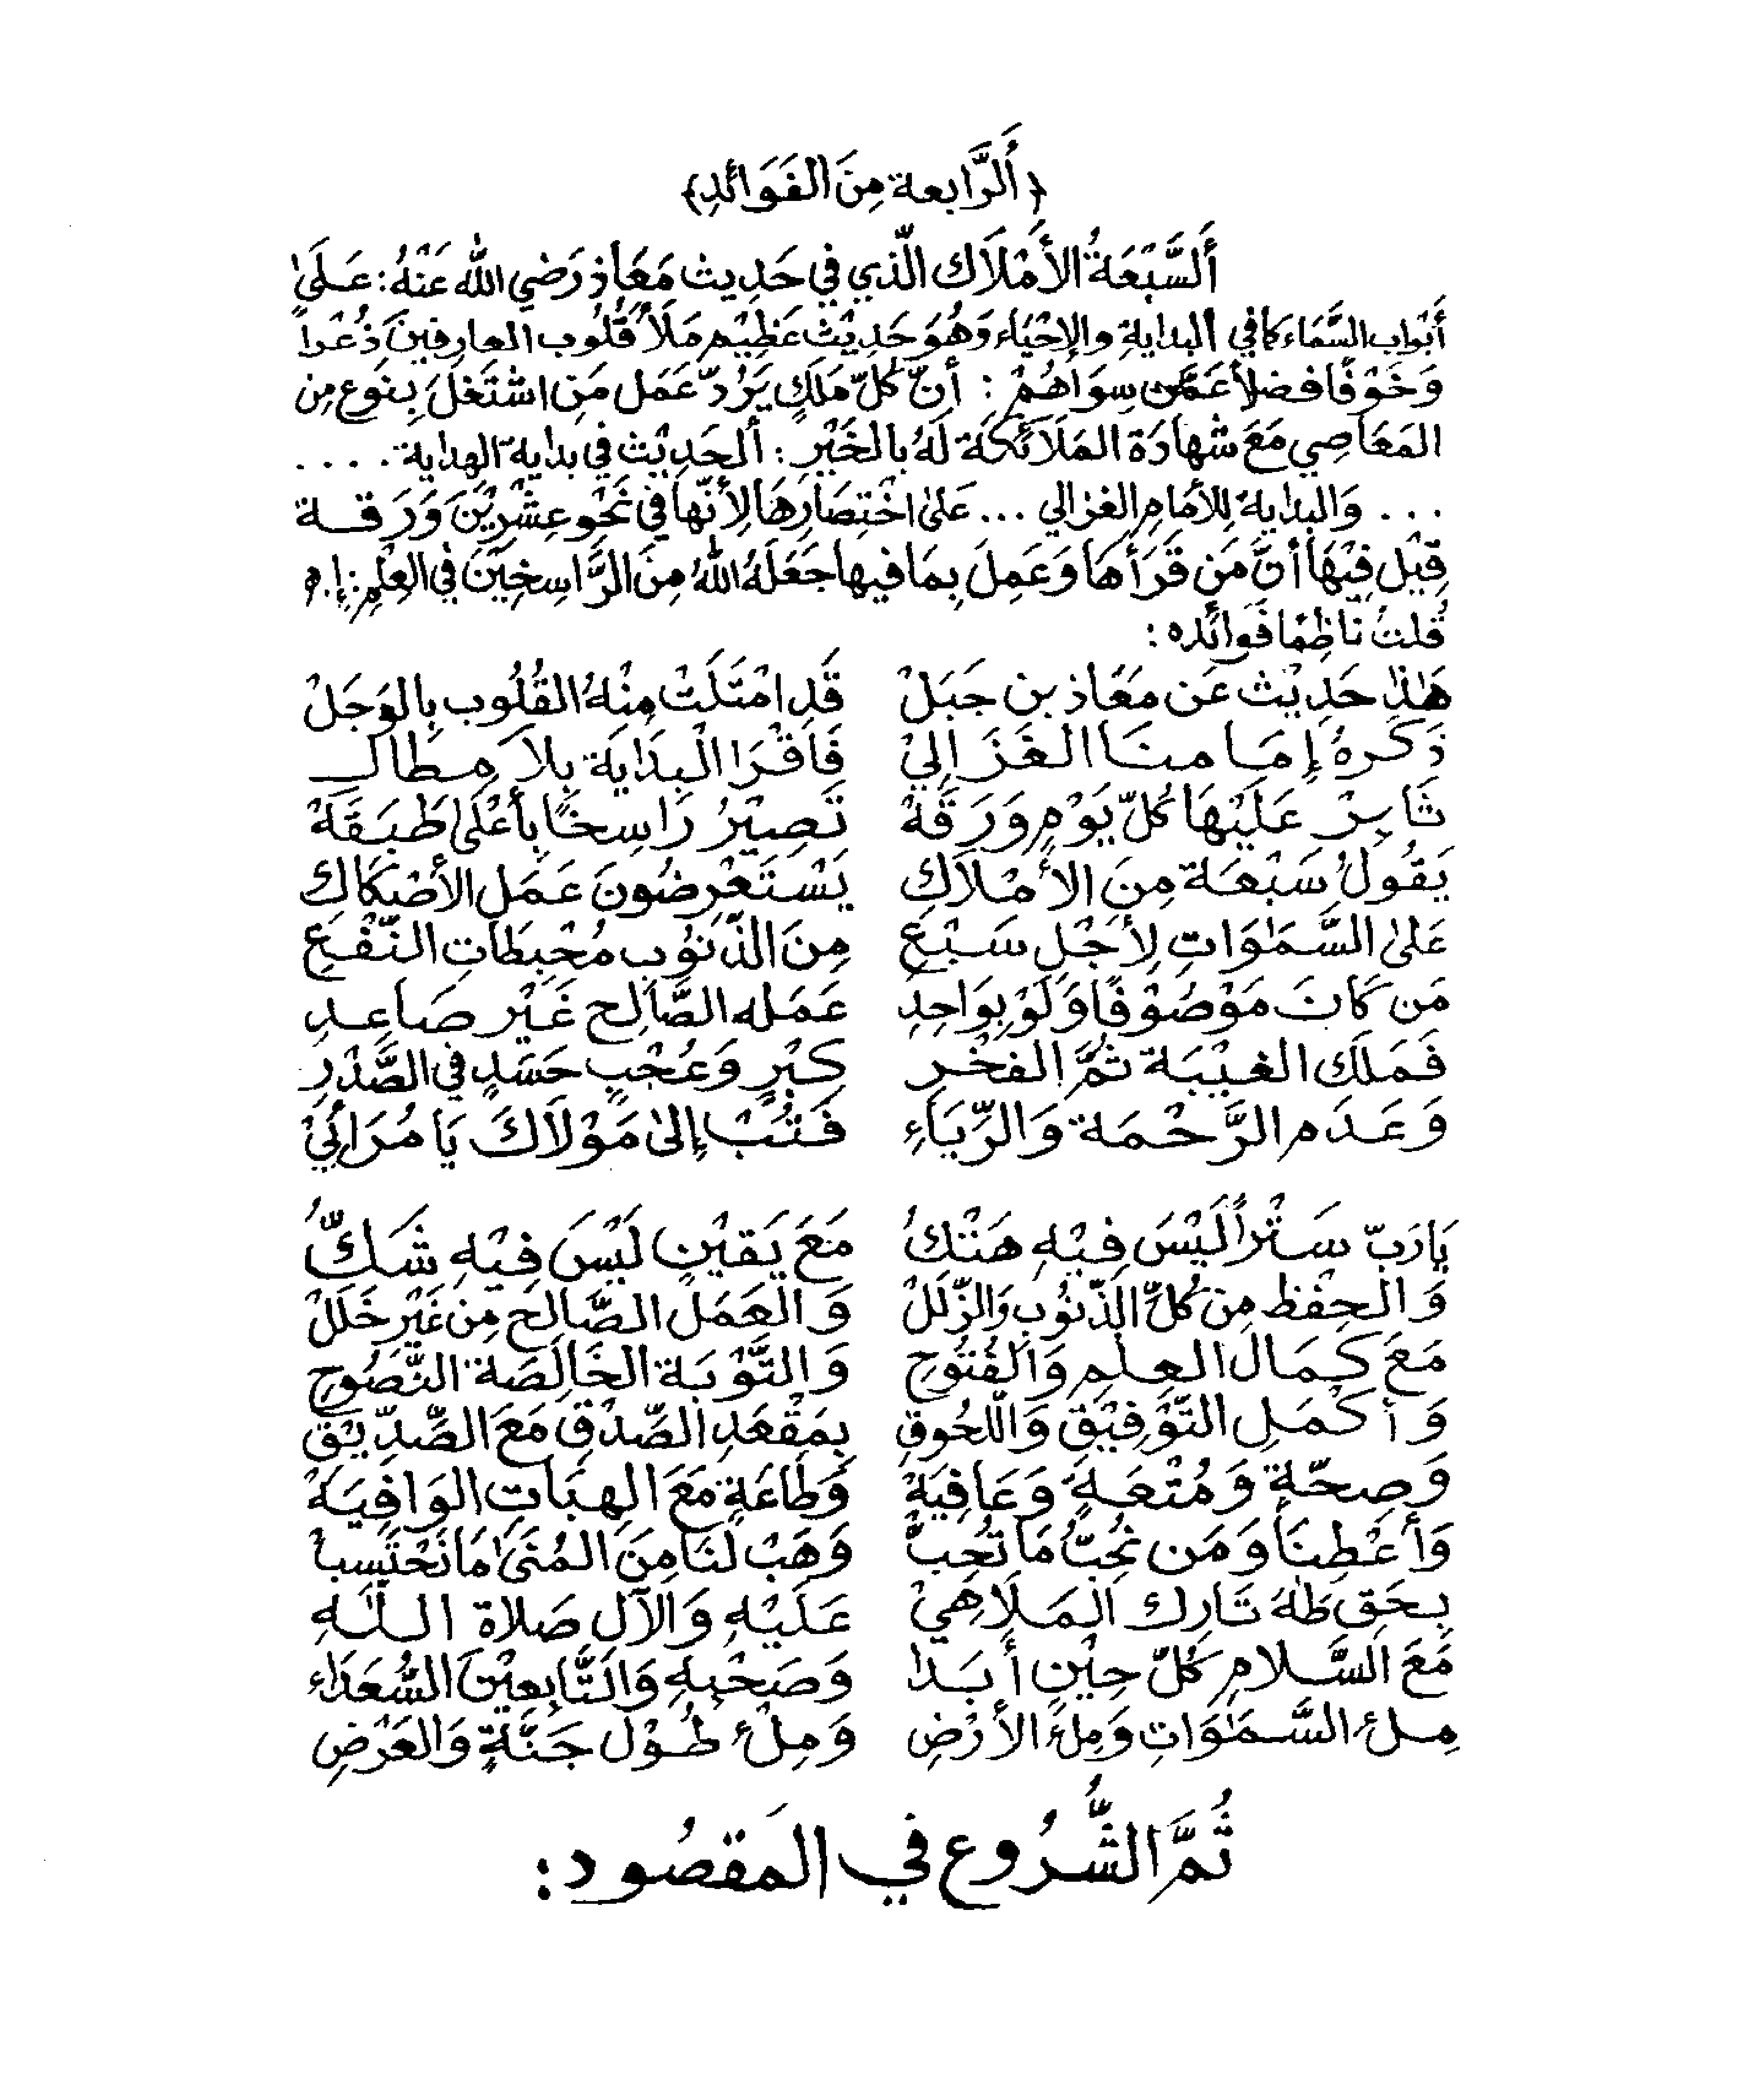 ﴿أَلرَّابعة مِنَ الفَوَائدِ﴾
أَلسَّبْعَةُ الأَمْلَاك الّذي في حَدِيث مَعَاذ رَضي اللّه عَنْهُ: عَلَىٰ
أَبْوَاب السَّمَاء كما في البدايةِ والإحْيَاء وَهُوَ حَدِيْث عَظِيْم مَلَأ قُلُوب العارفينَ ذُعْراً
وَخَوْفًا فضلاً عَمَّن سِوَاهُمْ : أنَّ كُلّ مَلَكٍ يَرُدّ عَمَل مَن اشْتَغلَ بِنَوع مِن
المَعَاصِي مَعَ شهادَة المَلَائكة لَهُ بالخَيْرِ : ألحَدِيْث في بداية الهداية . . . .
. . . وَالبداية لِلأمَامِ الغزالي ... عَلىٰ اخْتِصَارِهَا لِأنَّها في نَحْو عِشْرِيْنَ وَرَقة
قِيْل فِيْهَا أنَّ مَن قَرَأهَا وَعَمِلَ بِمَا فيها جَعَلَهُ اللّهُ مِنَ الرَّاسِخِيْنَ في العِلْمِ: إ.هـ
قُلتُ نَاظِمًا فَوَائده :
هٰذا حَدِيْث عَن مَعَاذ بن جَبَلْ قَدِ امْتَلَتْ مِنْهُ القُلُوب بِالوَجَلْ
ذَكَرهُ إمَامنَا الغَزَالِيْ فَاقْرَا الْبِدَايَة بِلاَ مِطَالِ
ثَابِرْ عَلَيْهَا كُلّ يَوْمٍ وَرَقَهْ تَصِيْرُ رَاسِخًا بِأعْلىٰ طَبَقَهْ
يَقُولُ سَبْعَة مِنَ الأمْلاَكِ يَسْتَعْرِضُونَ عَمَل الأصْكَاك
عَلىٰ السَّمٰوَاتِ لِأجْلِ سَبْعِ مِنَ الذُّنُوْب مُحْبِطَاتِ النَّفْعِ
مَن كَانَ مَوْصُوْفًا وَلَوْ بِوَاحِدِ عَمَله الصَّالِح غَيْر صَاعِدِ
فَمَلَك الغيْبَة ثمَّ الفخْرِ كِبْرٍ وَعُجْبٍ حَسَدٍ في الصَّدْرِ
وَعَدَم الرَّحْمَة وَالرِّيَاءِ فَتُبْ إلىٰ مَوْلَاكَ يَا مُرَائِيْ
يَارَبّ سَتْراً لَيْسَ فِيْهِ هَتْكُ مَعَ يَقيْنٍ لَيْسَ فِيْهِ شَكُّ
وَالحِفْظ مِن كُلّ الذّنُوْبِ وَالزّلَلْ وَالعَمَل الصَّالِحَ مِن غَيْر خَلَلْ
مَعَ كَمَال العِلمِ وَالفُتُوحِ وَالتَّوْبَة الخَالِصَة النَّصُوحِ
وَأكْمَلِ التَّوْفِيْق وَاللُّحُوقِ بِمَقْعَدِ الصِّدْقِ مَعَ الصِّدِّيْقِ
وَصِحّةٍ وَمُتْعَةٍ وَعَافِيَهْ وَطَاعَةٍ مَعَ الهِبَاتِ الوَافِيَهْ
وَأعْطِنَا وَمَن نُحِبُّ مَا تُحِبّْ وَهَبْ لَنَا مِنَ المُنَىٰ مَا نَحْتَسِبْ
بِحَقِ طٰهٰ تَارِك المَلَاهِيْ عَلَيْهِ وَالآل صَلاة اللّٰهِ
مَعَ السَّلام كُلّ حِيْنٍ أَبَدَا وَصَحْبِهِ وَالتَّابِعِيْنَ السُّعَدَاء
مِلءَ السَّمٰوَاتِ وَمِلءَ الأرْضِ وَمِلْءَ طُوْل جَنَّةٍ وَالعَرْضِ
ثُمَّ الشُّرُوع في المَقصُود: